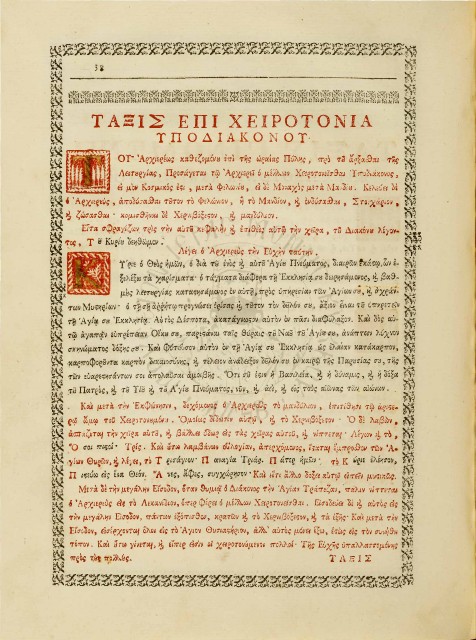 58
ΤΑΞΙΣ ΕΠΙ ΧΕΙΡΟΤΟΝΙΑ
ΥΠΟΔΙΑΚΟΝΟΥ.
ΤΟΥ Ἀρχιερέως καθεζομένου ἐπὶ τῆς ὡραίας Πύλης, πρὸ τοῦ ἄρξασθαι τῆς
Λειτουργίας, Προσάγεται τῷ Ἀρχιερεῖ ὁ μέλλων Χειροτονεῖσθαι Ὑποδιάκονος,
εἰ μὲν Κοσμικός ἐστι, μετὰ Φελωνίου, εἰ δὲ Μοναχὸς μετὰ Μανδύου. Κελεύει δὲ
ὁ Ἀρχιερεὺς, ἀποδύεσθαι τοῦτον τὸ Φελώνιον, ἢ τὸ Μανδίον, καὶ ἐνδύεσθαι, Στιχάριον,
καὶ ζώσασθαι· κομισθῆναι δὲ Χερνιβόξεστον, καὶ μανδύλιον.
Εἶτα σφραγίζων τρὶς τὴν αὐτοῦ κεφαλὴν καὶ ἐπιθεὶς αὐτῷ τὴν χεῖρα, τοῦ Διακόνου λέγον-
τος, Τοῦ Κυρίου δεηθῶμεν.
Λέγει ὁ Ἀρχιερεὺς τὴν Εὐχὴν ταύτην.
Κύριε ὁ Θεὸς ἡμῶν, ὁ διὰ τοῦ ἑνὸς καὶ αὐτοῦ Ἁγίου Πνεύματος, διαιρῶν ἑκάστῳ, ὧν ἐ-
ξελέξω τὰ χαρίσματα· ὁ τάγματα διάφορα τῇ Ἐκκλησίᾳ σου δωρησάμενος, καὶ βαθ-
μὸς λειτουργίας καταστησάμενος ἐν αὐτῇ, πρὸς ὑπηρεσίαν τῶν Ἁγίων σου, καὶ ἀχράν-
των Μυστηρίων· ὁ τῇ σῇ ἀρρήτῳ προγνώσει ὁρίσας καὶ τοῦτον τὸν δοῦλόν σου, ἄξιον εἶναι τοῦ ὑπηρετεῖν
τῇ Ἁγίᾳ σου Ἐκκλησίᾳ· Αὐτὸς Δέσποτα, ἀκατάγνωστον αὐτὸν ἐν πᾶσι διαφύλαξον. Καὶ δὸς αὐ-
τῷ ἀγαπᾶν εὐπρέπειαν Οἴκου σου, παρίστασθαι ταῖς θύραις τοῦ Ναοῦ τοῦ Ἁγίου σου, ἀνάπτειν λύχνον
σκηνώματος δόξης σου· Καὶ φύτευσον αὐτὸν ἐν τῇ Ἁγίᾳ σου Ἐκκλησίᾳ ὡς ἐλαίαν κατάκαρπον,
καρποφοροῦντα καρπὸν δικαιοσύνης, καὶ τέλειον ἀνάδειξον δοῦλόν σου ἐν καιρῷ τῆς Παρουσίας σου, τῆς
τῶν εὐαρεστησάντων σοι ἀπολαῦσαι ἀμοιβῆς. Ὅτι σοῦ ἐστιν ἡ Βασιλεία, καὶ ἡ δύναμις, καὶ ἡ δόξα
τοῦ Πατρὸς, καὶ τοῦ Υἱοῦ καὶ τοῦ Ἁγίου Πνεύματος, νῦν, καὶ ἀεὶ, καὶ εἰς τοὺς αἰῶνας τῶν αἰώνων.
Καὶ μετὰ τὴν Ἐκφώνησιν, δεχόμενος ὁ Ἀρχιερεὺς τὸ μανδύλιον, ἐπιτίθησι τῷ ἀριστε-
ρῷ ὤμῳ τοῦ Χειροτονουμένου. Ὁμοίως δίδωσιν αὐτῷ, καὶ τὸ Χερνιβόξεστον. Ὁ δὲ λαβὼν,
ἀσπάζεται τὴν χεῖρα αὐτοῦ, καὶ βάλλων ὕδωρ εἰς τὰς χεῖρας αὐτοῦ, καὶ νίπτεται· Λέγων καὶ τὸ,
Ὅσοι πιστοί· Τρίς. Καὶ οὕτω λαμβάνων εὐλογίαν, ἀπερχόμενος, ἵσταται ἔμπροσθεν τῶν Ἁ-
γίων Θυρῶν, καὶ λέγει, τὸ Τρισάγιον· Παναγία Τριάς. Πάτερ ἡμῶν· τὸ Κύριε ἐλέησον,
Πιστεύω εἰς ἕνα Θεόν. Ἄνες, ἄφες, συγχώρησον· Καὶ εἴτι ἄλλο δόξει αὐτῷ εἰπεῖν μυστικῶς.
Μετὰ δὲ τὴν μεγάλην Εἴσοδον, ὅταν θυμιᾷ ὁ Διάκονος τὴν Ἁγίαν Τράπεζαν, πάλιν νίπτεται
ὁ Ἀρχιερεὺς εἰς τὸ Λεκανίδιον, ὅπερ φέρει ὁ μέλλων Χειροτονεῖσθαι. Εἰσοδεύει δὲ καὶ αὐτὸς εἰς
τὴν μεγάλην Εἴσοδον, πάντων ἐξόπισθεν, κρατῶν καὶ τὸ Χερνιβόξεστον, καὶ τὰ ἑξῆς· Καὶ μετὰ τὴν
Εἴσοδον, εἰσέρχονται ὅλοι εἰς τὸ Ἅγιον Θυσιαστήριον, ἀλλ' αὐτὸς μένει ἔξω, ἕως εἰς τὸν συνήθη
τόπον. Καὶ οὕτω γίνεται, καὶ εἴπερ εἶεν οἱ χειροτονούμενοι πολλοί· Τῆς Εὐχῆς ὑπαλλαττομένης
πρὸς τοὺς πολλούς. ΤΑΞΙΣ